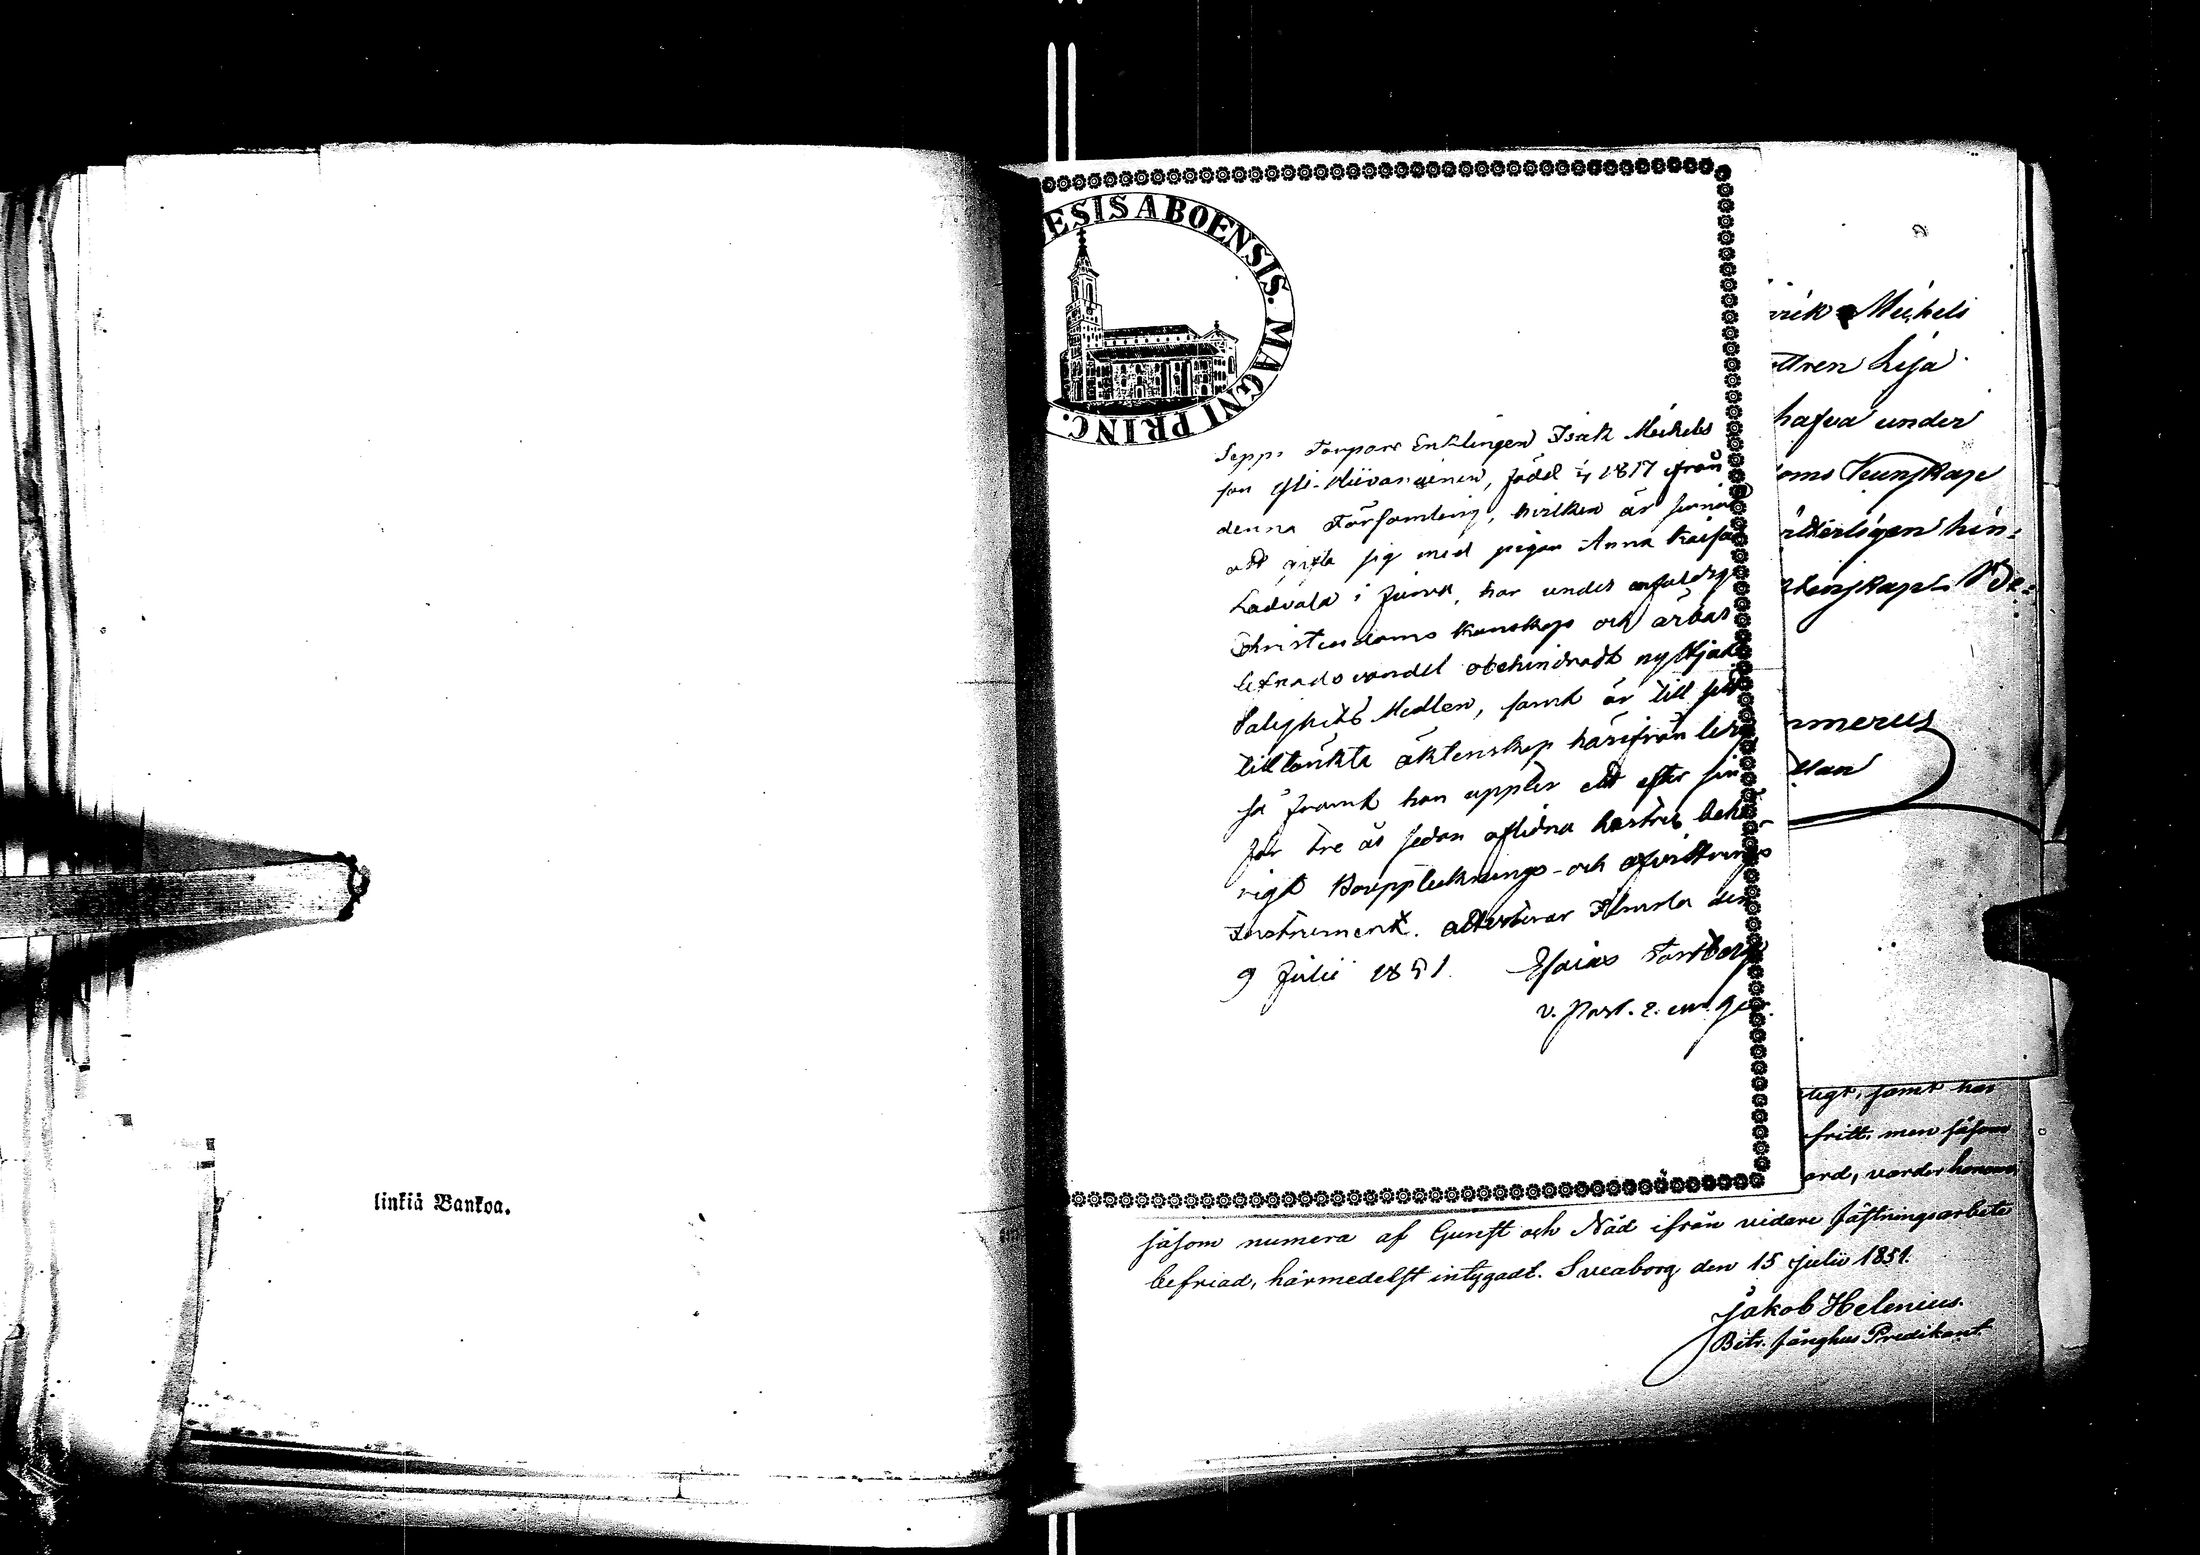 linkiä Bankoa.
ESIS ABOENSIS. MAGNI PRINC.
Sepps Torpare Enklingen Isak Michels
son Yli-, född 1817 från
denna Församling, hvilken är sinnad
att gifta sig med pigan Anna Kaisa
Ladvala i, har under
Christendoms kunskap och ärbar
lefnads vandel obehindradt nyttjat
Salighets Medlen, samt är till sitt
tilltänkta äktenskap härifrån
så framt han uppter ett efter sin
för tre år sedan aflidna hustru behö
rigt Bouppteknings- och afvittrings
Instrument. attesterar den
9 Julii 1851. Esaias
v. Past.
rik Michels
ttren Lisa
hafva under
oms Kunskap
hin-
merus
ligt, samt har
fritt, men såsom
ard, varder honom
såsom numera af Gunst och Nåd ifrån vidare fästningsarbete
befriad, härmedelst intygadt. Sveaborg den 15 Julii 1851.
Jakob Helenius.
Bitr. fånghus Predikant.